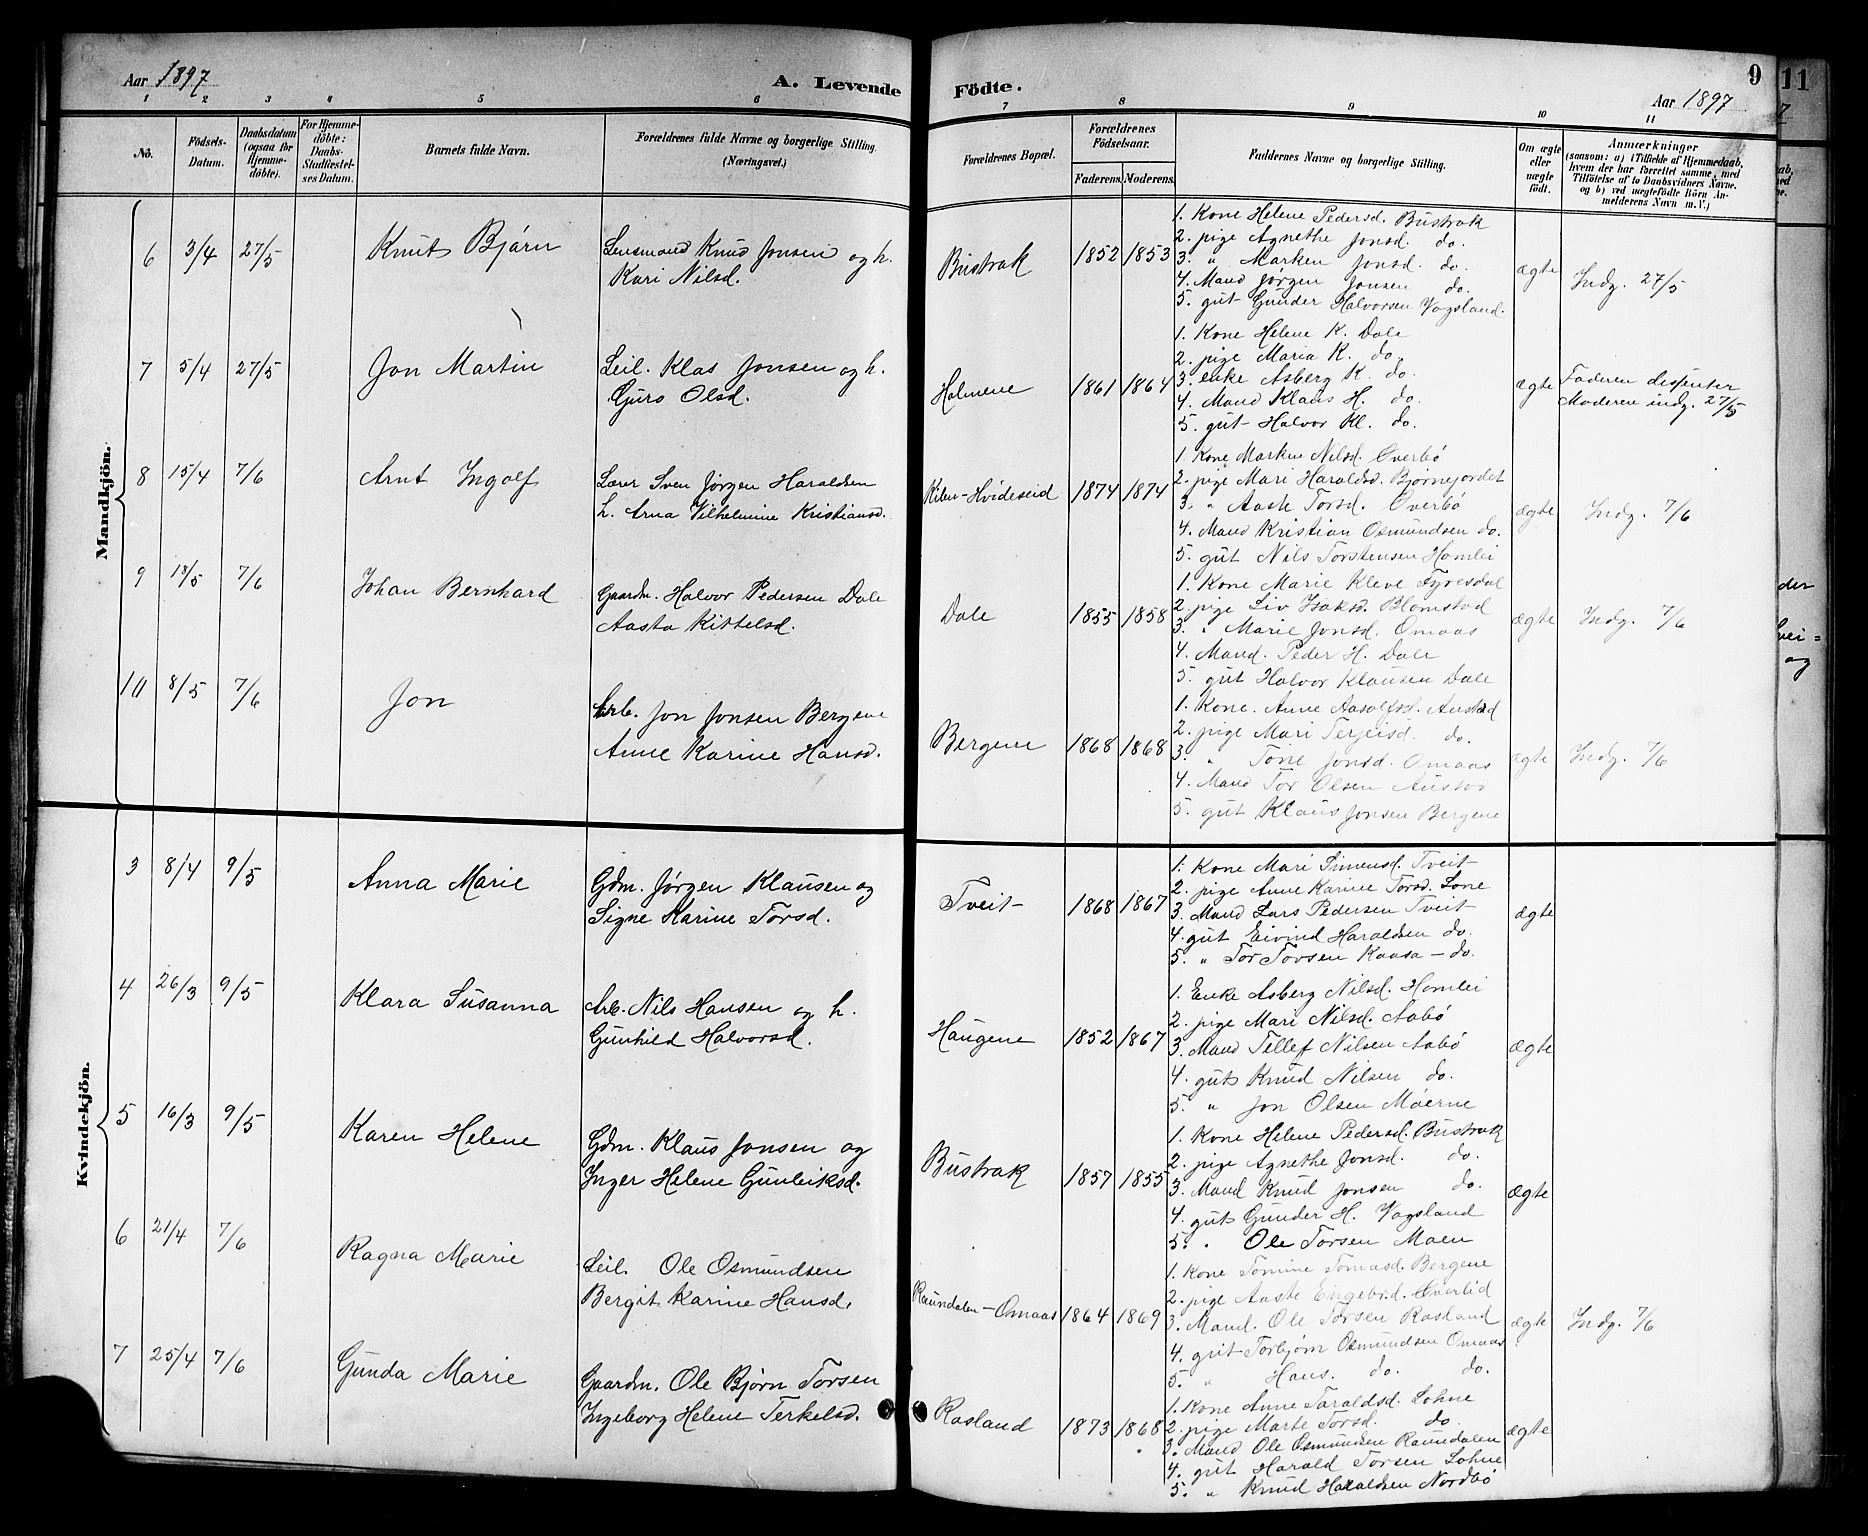 Aar 1897
A. Levende Födte.
9
Aar 1897
11
1 2 3 4 5 6 7 8 9 10 11
Nô.
Födsels-Datum.
Daabsdatum (ogsaa för Hjemme-döbte).
For Hjemme-döbte: Daabs-Stadfæstel-ses Datum.
Barnets fulde Navn.
Forældrenes fulde Navne og borgerlige Stilling. (Næringsvei.)
Forældrenes Bopæl.
Forældrenes Födselsaar.
Faderens. Moderens.
Faddernes Navne og borgerlige Stilling.
Om ægte eller uægte födt.
Anmærkninger
(saasom: a) i Tilfælde af Hjemmedaab,
hvem der har forrettet samme, med
Tilföielse af to Daabsvidners Navne.
og b) ved uægtefödte Börn An-
melderens Navn m.V.)
Mandkjön.
6 3/4 27/5 Knut Bjørn
Lensmand Knud Jonsen og h.
Kari Nilsd.
Bustrak 1852 1853
1. Kone Helene Pedersd. Bustrak
2. pige Agnethe Jonsd. do.
3. " Marken Jonsd. do.
4. Mand Jørgen Jonsen do.
5. gut Gunder Halvorsen Vagsland.
ægte Indg. 27/5
7 5/4 27/5 Jon Martin
Leil. Klas Jonsen og h.
Guro Olsd.
Holmene 1861 1864
1. Kone Helene K. Dale
2. pige Maria K. do.
3. enke Asberg K. do.
4. Mand Klaus H. do.
5. gut Halvor Kl. do.
ægte Faderen dissenter
Moderen indg. 27/5
8 15/4 7/6 Arnt Ingolf
Lærer Sven Jørgen Haraldsen
h. Arna Vilhelmine Kristiansd.
Kilen-Hvideseid 1874 1874
1. Kone Marken Nilsd. Överbö
2. pige Mari Haraldsd. Bjørnejordet
3. " Aaste Torsd. Överbö
4. Mand Kristian Osmundsen do.
5. gut Nils Torstensen Homlei
ægte Indg. 7/6
9 18/5 7/6 Johan Bernhard
Gaardm. Halvor Pedersen Dale
Aasta Kittelsd.
Dale 1855 1858
1. Kone Marie Kleve Fyresdal
2. pige Liv Isaksd. Blomstad
3. " Marie Jonsd. Omaas
4. Mand. Peder H. Dale
5. gut Halvor Klausen Dale
ægte Indg. 7/6
10 8/5 7/6 Jon
Arb. Jon Jonsen Bergene
Anne Karine Hansd.
Bergene 1868 1868
1. Kone. Anne Aasolfsd. Austad
2. pige Mari Terjeisd. do.
3. " Tone Jonsd. Omaas
4. Mand Tor Olsen Austad
5. gut Klaus Jonsen Bergene
ægte Indg. 7/6
Kvindekjön.
3 8/4 9/5 Anna Marie
Gdm. Jørgen Klausen og
Signe Karine Torsd.
Tveit 1868 1867
1. Kone Mari Simensd. Tveit
2. pige Anne Karine Torsd. Lone
3. Mand Lars Pedersen Tveit
4. gut Eivind Haraldsen do.
5. " Tor Tovsen Kaasa - do.
ægte
4 26/3 9/5 Klara Susanna
Arb. Nils Hansen og h.
Gunhild Halvorsd.
Haugene 1852 1867
1. Enke Asberg Nilsd. Homlei
2. pige Mari Nilsd. Aabö
3. Mand Tellef Nilsen Aabö
4. gut Knud Nilsen do.
5. " Jon Olsen Moerne
ægte
5 16/3 9/5 Karen Helene
Gdm. Klaus Jonsen og
Inger Helene Gunleiksd.
Bustrak 1857 1855
1. Kone Helene Pedersd. Bustrak
2. pige Agnethe Jonsd. do.
3. Mand Knud Jonsen do.
4. gut Gunder H. Vagsland
5. " Ole Torsen Moen
ægte
6 21/4 7/6 Ragna Marie
Leil. Ole Osmundsen
Bergit Karine Hansd.
Raundalen-Omaas 1864 1869
1. Kone Tomine Tomasd. Bergene
2. pige Aaste Engebrd. Överlid
3. Mand. Ole Torsen Rasland
4. gut Torbjørn Osmundsen Omaas
5. " Hans. do. do.
ægte Indg. 7/6
7 25/4 7/6 Gunda Marie
Gaardm. Ole Bjørn Torsen
Ingeborg Helene Terkelsd.
Rasland 1873 1868
1. Kone Anne Taraldsd. Lohne
2. pige Marte Torsd. do.
3. Mand Ole Osmundsen Raundalen
4. gut Harald Torsen Lohne
5. " Knud Haraldsen Nordbö
ægte